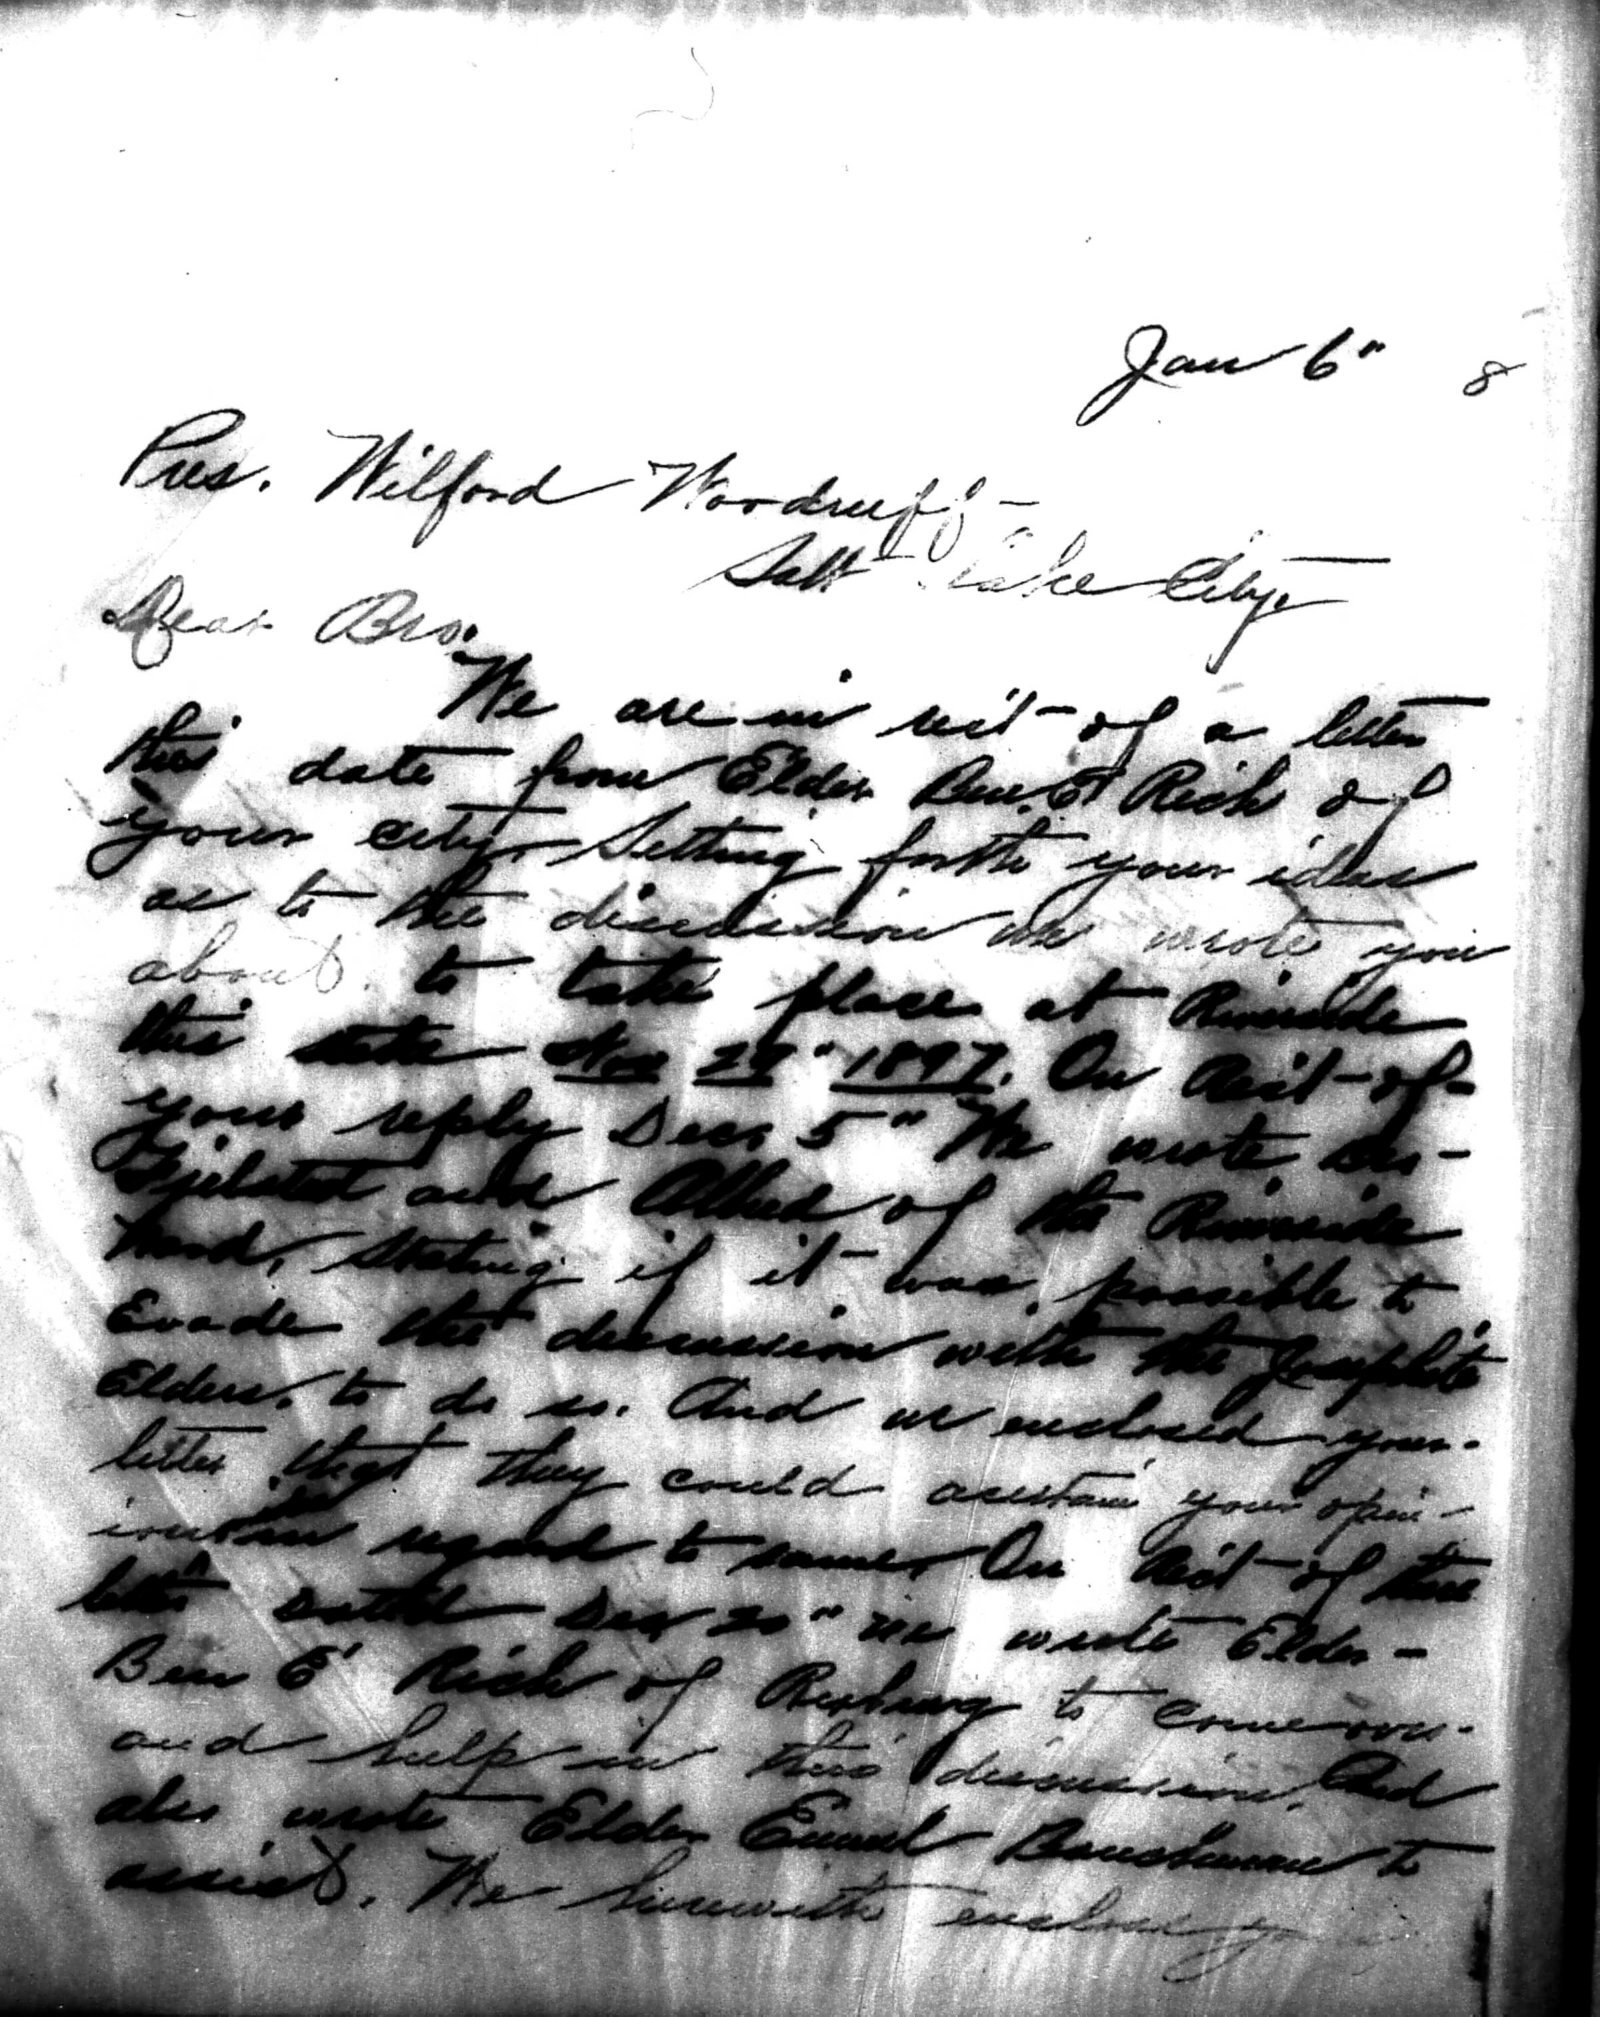 Jan 6" 8
Pres. Wilford Woodruff-
Salt Lake City.
Dear Bro.
We are in rec't of a letter
this date from Elder Ben. E. Rich of
your city, Setting forth your ideas
as to the discussion we wrote you
about. to take place at Riverside
this state Nov 29" 1897. On Rec't of-
your reply Dec. 5" We wrote Bro-
and Allred of the Riverside
Ward, stating if it was, possible to
Evade the discussion with the Josephite
Elders, to do so. And we enclosed your-
letter that they could asertain your opin-
ion in regard to same. On Rec't of these
letter dated Dec 20" we wrote Elder-
Ben E. Rich of Rexburg to come over-
and help in this discussion. And
also wrote Elder to
assist. We herewith enclose you